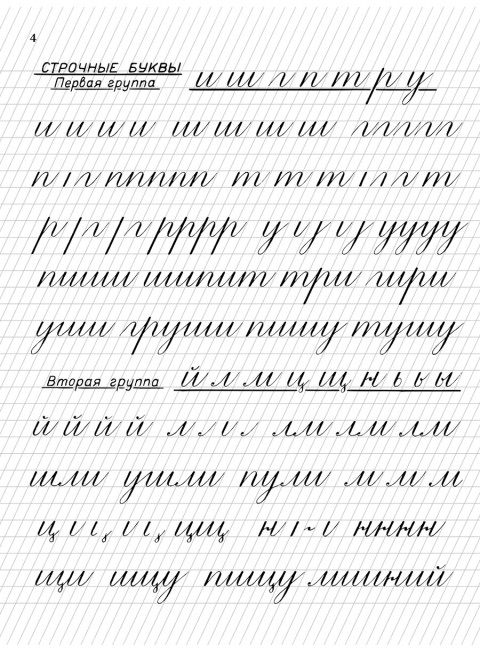 4
СТРОЧНЫЕ БУКВЫ
Первая группа
и ш г п т р у
и и и и ш ш ш ш ш г г г г г
п ı г п п п п п т т т ı г г т
р / г / г р р р р у ı ȷ ı ȷ у у у у
пиши шипит три гири
уши груши пишу тушу
Вторая группа
й л м ц щ н ь ы ы
й й й й л лм лм лм
шли ушли пули м м м м
ц цщ н нннн
щи ищу пищу лишний